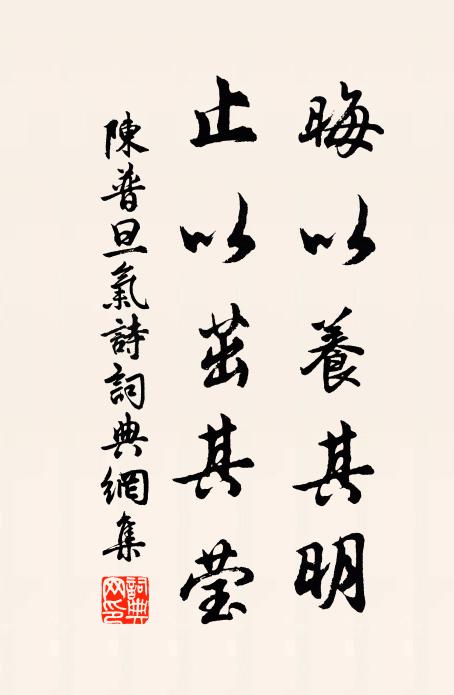 晦以養其明
止以茁其莹
陳普旦氣詩詞典網集
詞典网印